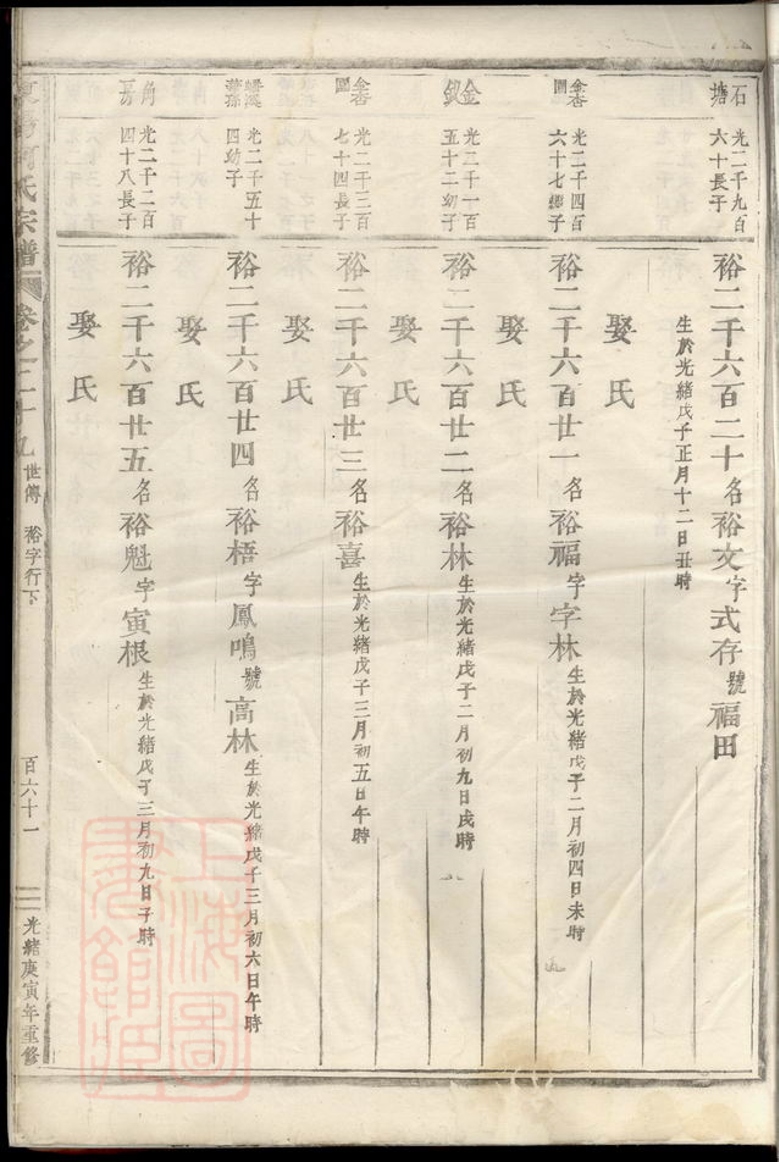 石塘
光二千九百六十長子
裕二千六百二十名裕文字式存號福田
生於光緒戊子正月十二日丑時
娶氏
金杏園
光二千四百六十七幼子
裕二千六百廿一名裕福字字林生於光緒戊子二月初四日未時
娶氏
金
光二千一百五十二幼子
裕二千六百廿二名裕林生於光緒戊子二月初九日戌時
娶氏
金杏園
光二千三百七十四長子
裕二千六百廿三名裕喜生於光緒戊子三月初五日午時
娶氏
光二千五十四幼子
裕二千六百廿四名裕梧字鳳鳴號高林生於光緒戊子三月初六日午時
娶氏
角房
光二千二百四十八長子
裕二千六百廿五名裕魁字寅根生於光緒戊子三月初九日子時
娶氏
何氏宗譜 卷之二十九 世傳 裕字行下 百六十一 光緒庚寅年重修
上海圖書館藏